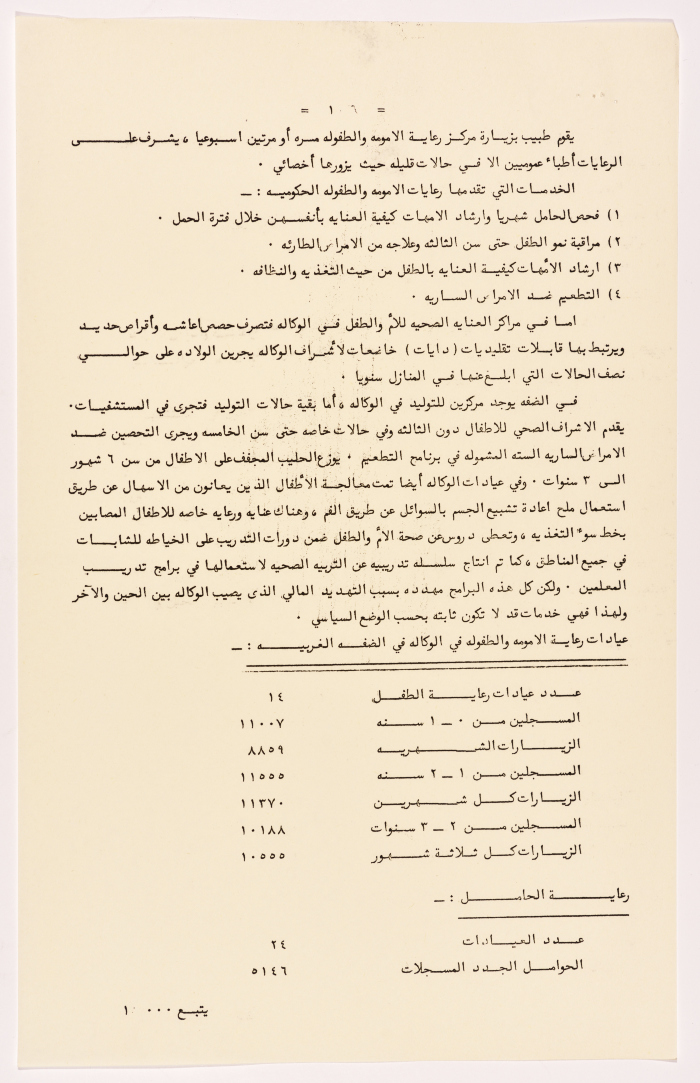 = ١٦ =
يقوم طبيب بزيارة مركز رعاية الامومه والطفوله مره أو مرتين اسبوعيا ، يشرف على
الرعايات أطباء عموميين الا في حالات قليله حيث يزورها أخصائي .
الخدمات التي تقدمها رعايات الامومه والطفوله الحكوميه : ـ
١) فحص الحامل شهريا وارشاد الامهات كيفية العنايه بأنفسهن خلال فترة الحمل .
٢) مراقبة نمو الطفل حتى سن الثالثه وعلاجه من الامراض الطارئه .
٣) ارشاد الأمهات كيفية العنايه بالطفل من حيث التغذيه والنظافه .
٤) التطعيم ضد الامراض الساريه .
اما في مراكز العنايه الصحيه للأم والطفل في الوكاله فتصرف حصص اعاشه وأقراص حديد
ويرتبط بها قابلات تقليديات ( دايات ) خاضعات لأشراف الوكاله يجرين الولاده على حوالي
نصف الحالات التي ابلغ عنها في المنازل سنويا .
في الضفه يوجد مركزين للتوليد في الوكاله ، أما بقية حالات التوليد فتجرى في المستشفيات .
يقدم الاشراف الصحي للاطفال دون الثالثه وفي حالات خاصه حتى سن الخامسه ويجرى التحصين ضد
الامراض الساريه السته المشموله في برنامج التطعيم . يوزع الحليب المجفف على الاطفال من سن ٦ شهور
الى ٣ سنوات . وفي عيادات الوكاله أيضا تمت معالجة الأطفال الذين يعانون من الاسهال عن طريق
استعمال ملح اعادة تشبيع الجسم بالسوائل عن طريق الفم ، وهناك عنايه ورعايه خاصه للاطفال المصابين
بخط سوء التغذيه ، وتعطى دروس عن صحة الأم والطفل ضمن دورات التدريب على الخياطه للشابات
في جميع المناطق ، كما تم انتاج سلسله تدريبيه عن التربيه الصحيه لاستعمالها في برامج تدريب
المعلمين . ولكن كل هذه البرامج مهدده بسبب التهديد المالي الذى يصيب الوكاله بين الحين والآخر
ولهذا فهي خدمات قد لا تكون ثابته بحسب الوضع السياسي .
عيادات رعاية الامومه والطفوله في الوكاله في الضفه الغربيه : ـ
عدد عيادات رعاية الطفل ١٤
المسجلين من ٠ ـ ١ سنه ١١٠٠٧
الزيارات الشهريه ٨٨٥٩
المسجلين من ١ ـ ٢ سنه ١١٥٥٥
الزيارات كل شهرين ١١٣٧٠
المسجلين من ٢ ـ ٣ سنوات ١٠١٨٨
الزيارات كل ثلاثة شهور ١٠٥٥٥
رعاية الحامل : ـ
عدد العيادات ٢٤
الحوامل الجدد المسجلات ٥١٤٦
يتبع ٠٠٠